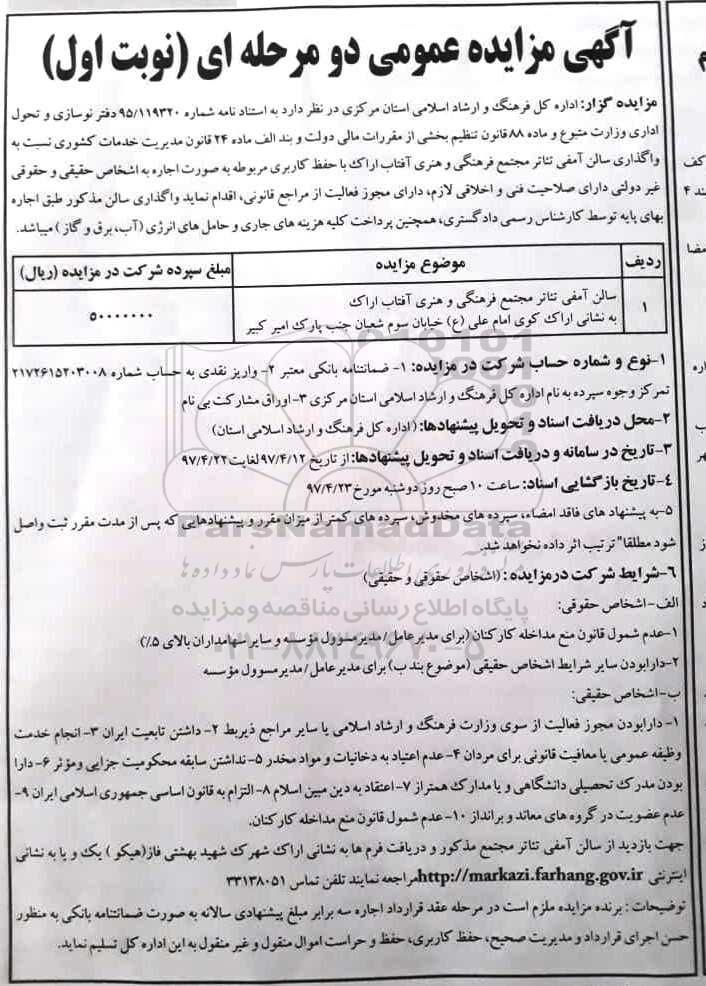 آگهی مزایده عمومی دو مرحله ای (نوبت اول)
مزایده گزار: اداره کل فرهنگ و ارشاد اسلامی استان مرکزی در نظر دارد به استناد نامه شماره ۹۵/۱۱۹۳۲۰ دفتر نوسازی و تحول
اداری وزارت متبوع و ماده ۸۸ قانون تنظیم بخشی از مقررات مالی دولت و بند الف ماده ۲۴ قانون مدیریت خدمات کشوری نسبت به
واگذاری سالن آمفی تئاتر مجتمع فرهنگی و هنری آفتاب اراک با حفظ کاربری مربوطه به صورت اجاره به اشخاص حقیقی و حقوقی
غیر دولتی دارای صلاحیت فنی و اخلاقی لازم، دارای مجوز فعالیت از مراجع قانونی، اقدام نماید واگذاری سالن مذکور طبق اجاره
بهای پایه توسط کارشناس رسمی دادگستری، همچنین پرداخت کلیه هزینه های جاری و حامل های انرژی (آب، برق و گاز) میباشد.
ردیف موضوع مزایده مبلغ سپرده شرکت در مزایده (ریال)
۱ سالن آمفی تئاتر مجتمع فرهنگی و هنری آفتاب اراک
به نشانی اراک کوی امام علی (ع) خیابان سوم شعبان جنب پارک امیر کبیر ۵۰۰۰۰۰۰۰
۱-نوع و شماره حساب شرکت در مزایده: ۱- ضمانتنامه بانکی معتبر ۲- واریز نقدی به حساب شماره ۲۱۷۲۶۱۵۲۰۳۰۰۸
تمرکز وجوه سپرده به نام اداره کل فرهنگ و ارشاد اسلامی استان مرکزی ۳-اوراق مشارکت بی نام
۲-محل دریافت اسناد و تحویل پیشنهادها: (اداره کل فرهنگ و ارشاد اسلامی استان)
۳-تاریخ در سامانه و دریافت اسناد و تحویل پیشنهادها: از تاریخ ۹۷/۴/۱۲ لغایت ۹۷/۴/۲۲
۴-تاریخ بازگشایی اسناد: ساعت ۱۰ صبح روز دوشنبه مورخ ۹۷/۴/۲۳
۵-به پیشنهاد های فاقد امضاء، سپرده های مخدوش، سپرده های کمتر از میزان مقرر و پیشنهادهایی که پس از مدت مقرر ثبت واصل
شود مطلقا" ترتیب اثر داده نخواهد شد.
۶-شرایط شرکت در مزایده: (اشخاص حقوقی و حقیقی)
الف-اشخاص حقوقی:
۱-عدم شمول قانون منع مداخله کارکنان (برای مدیرعامل/مدیرمسوول مؤسسه و سایر سهامداران بالای ۵٪)
۲-دارابودن سایر شرایط اشخاص حقیقی (موضوع بند ب) برای مدیرعامل/مدیرمسوول مؤسسه
ب-اشخاص حقیقی:
۱- دارابودن مجوز فعالیت از سوی وزارت فرهنگ و ارشاد اسلامی یا سایر مراجع ذیربط ۲- داشتن تابعیت ایران ۳-انجام خدمت
وظیفه عمومی یا معافیت قانونی برای مردان ۴-عدم اعتیاد به دخانیات و مواد مخدر ۵-نداشتن سابقه محکومیت جزایی ومؤثر ۶-دارا
بودن مدرک تحصیلی دانشگاهی و یا مدارک همتراز ۷-اعتقاد به دین مبین اسلام ۸-التزام به قانون اساسی جمهوری اسلامی ایران ۹-
عدم عضویت در گروه های معاند و برانداز ۱۰-عدم شمول قانون منع مداخله کارکنان.
جهت بازدید از سالن آمفی تئاتر مجتمع مذکور و دریافت فرم ها به نشانی اراک شهرک شهید بهشتی فاز(هپکو) یک و یا به نشانی
اینترنتی http://markazi.farhang.gov.ir مراجعه نمایند تلفن تماس ۳۳۱۳۸۰۵۱
توضیحات: برنده مزایده ملزم است در مرحله عقد قرارداد اجاره سه برابر مبلغ پیشنهادی سالانه به صورت ضمانتنامه بانکی به منظور
حسن اجرای قرارداد و مدیریت صحیح، حفظ کاربری، حفظ و حراست اموال منقول و غیر منقول به این اداره کل تسلیم نماید.
ParsNamadData
فرآوری اطلاعات پارس نماد داده ها
پایگاه اطلاع رسانی مناقصه و مزایده
۰۲۱-۸۸۳۴۹۶۷۰-۵